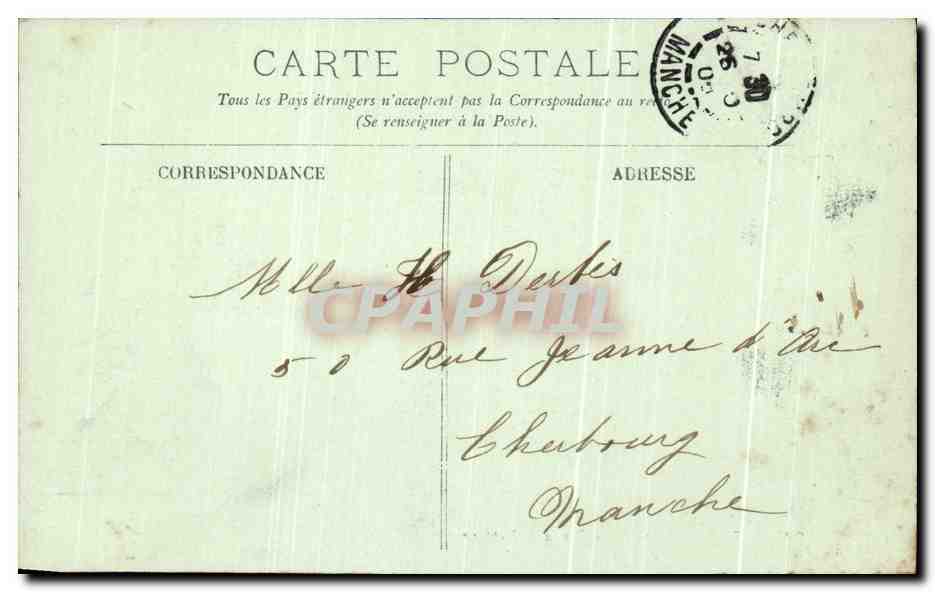 CARTE POSTALE
Tous les Pays étrangers n'acceptent pas la Correspondance au
(Se renseigner à la Poste).
CORRESPONDANCE
ADRESSE
MANCHE
7 30
26
Mlle H Derbès
CPAPHIL
50 Rue Jeanne d'Arc
Cherbourg
Manche